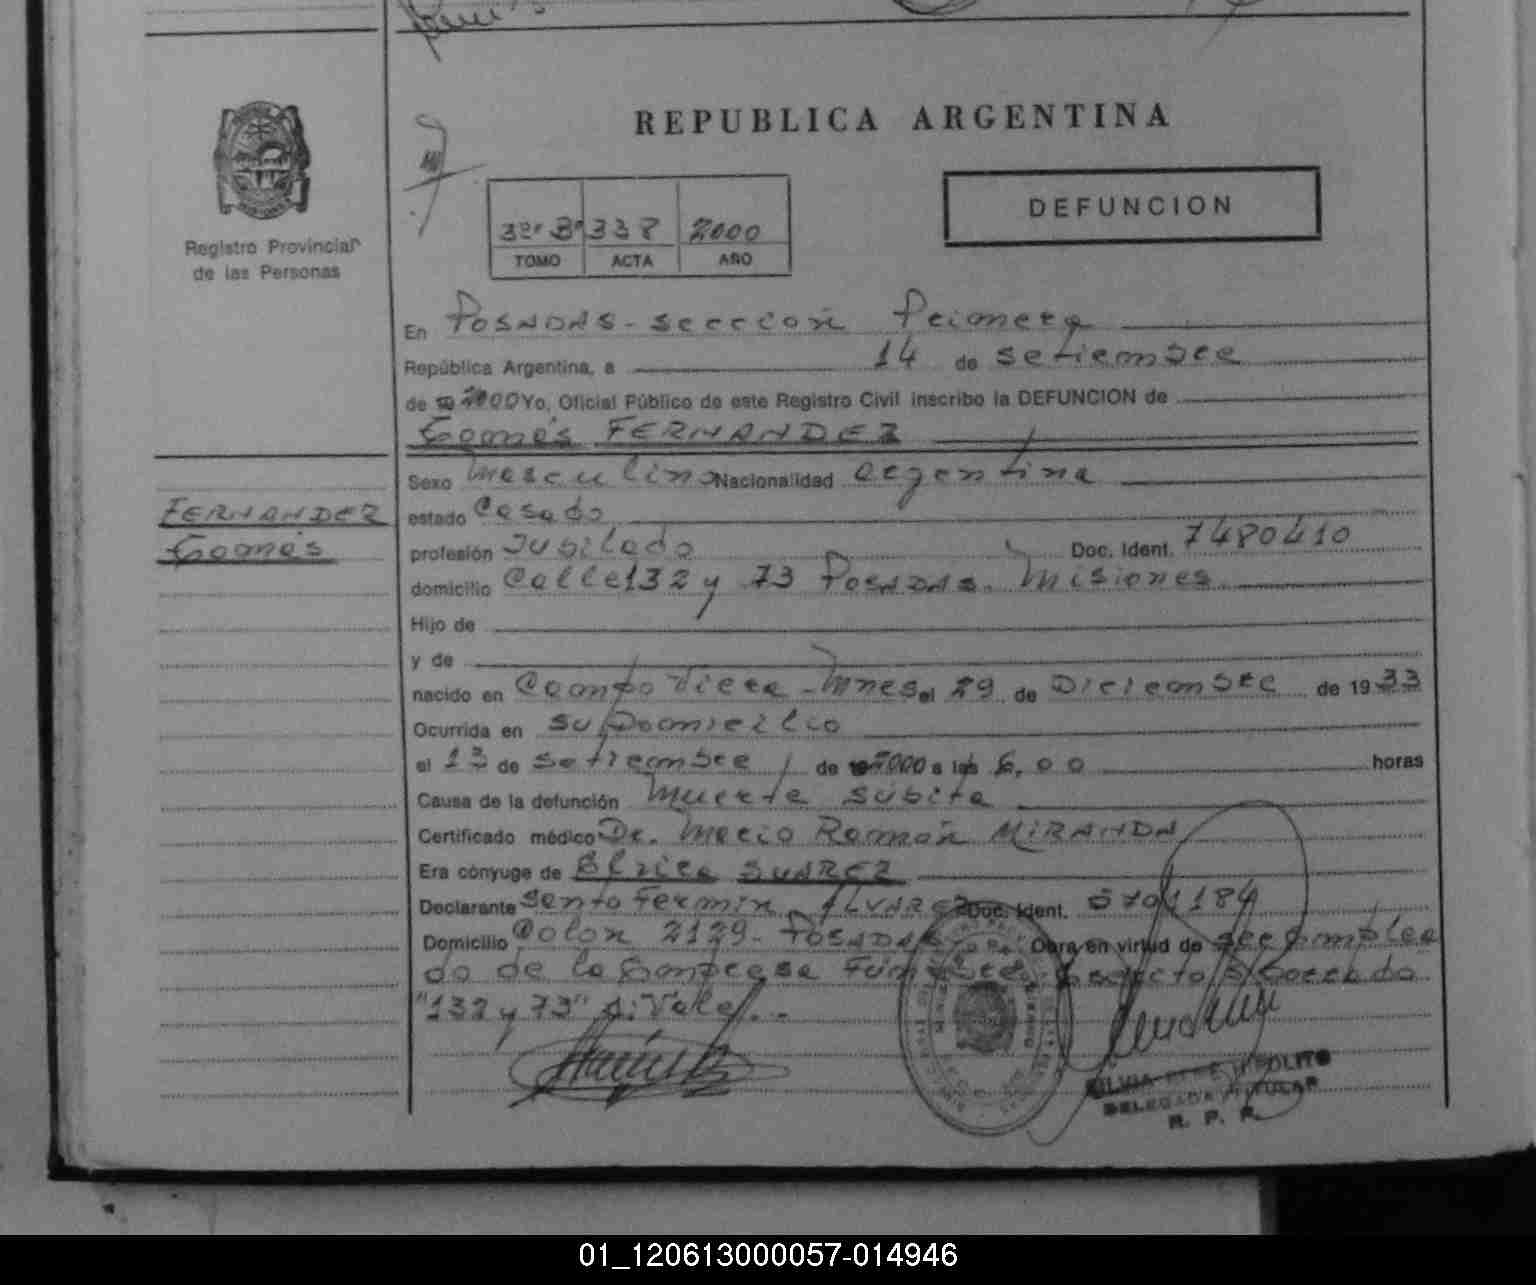 REPUBLICA ARGENTINA
DEFUNCION
Registro Provincial
de las Personas
3º B 338 2000
TOMO ACTA AÑO
En POSADAS - Sección Primera
República Argentina, a 14 de Setiembre
de 2000 Yo, Oficial Público de este Registro Civil inscribo la DEFUNCION de
Tomás FERNANDEZ
Sexo Masculino Nacionalidad Argentina
FERNANDEZ
Tomás
estado Casado
profesión Jubilado Doc. Ident. 7480410
domicilio Calle 132 y 73 POSADAS - Misiones
Hijo de
y de
nacido en Campo Viera - Mnes el 29 de Diciembre de 1933
Ocurrida en su Domicilio
el 13 de Setiembre de 2000 a las 6,00 horas
Causa de la defunción Muerte súbita
Certificado médico Dr. Mario Ramón MIRANDA
Era cónyuge de Elvira SUAREZ
Declarante Santo Fermín ALVAREZ Doc. Ident. 5701184
Domicilio Colón 2129 - POSADAS Obra en virtud de ser emplea
do de la Empresa
"132 y 73" S: Vale. -
SILVIA HIPOLITO
DELEGADA TITULAR
R. P. P.
01_120613000057-014946